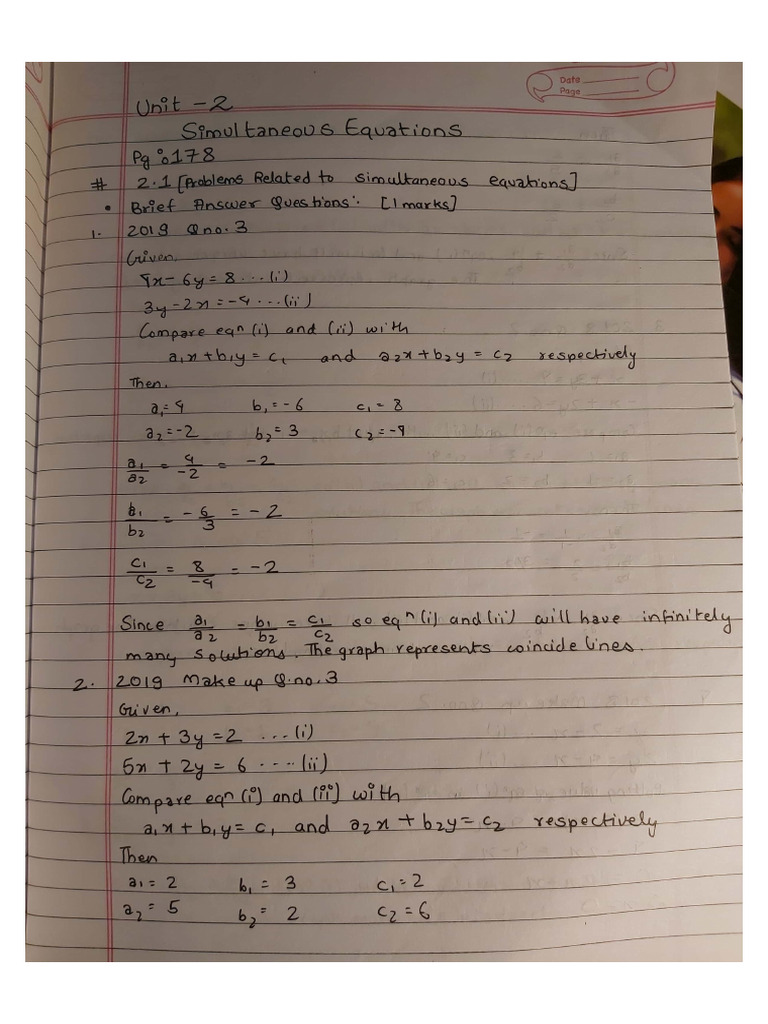 Date
Page
Unit - 2
Simultaneous Equations
Pg : 178
# 2.1 [Problems Related to simultaneous equations]
• Brief Answer Questions: [1 marks]
1. 2019 Q no. 3
Given,
4x - 6y = 8 ... (i)
3y - 2x = -4 ... (ii)
Compare eqⁿ (i) and (ii) with
a₁x + b₁y = c₁ and a₂x + b₂y = c₂ respectively
Then,
a₁ = 4 b₁ = -6 c₁ = 8
a₂ = -2 b₂ = 3 c₂ = -4
a₁/a₂ = 4/-2 = -2
b₁/b₂ = -6/3 = -2
c₁/c₂ = 8/-4 = -2
Since a₁/a₂ = b₁/b₂ = c₁/c₂ so eqⁿ (i) and (ii) will have infinitely
many solutions. The graph represents coincide lines.
2. 2019 Make up Q. no. 3
Given,
2x + 3y = 2 ... (i)
5x + 2y = 6 .... (ii)
Compare eqⁿ (i) and (ii) with
a₁x + b₁y = c₁ and a₂x + b₂y = c₂ respectively
Then
a₁ = 2 b₁ = 3 c₁ = 2
a₂ = 5 b₂ = 2 c₂ = 6